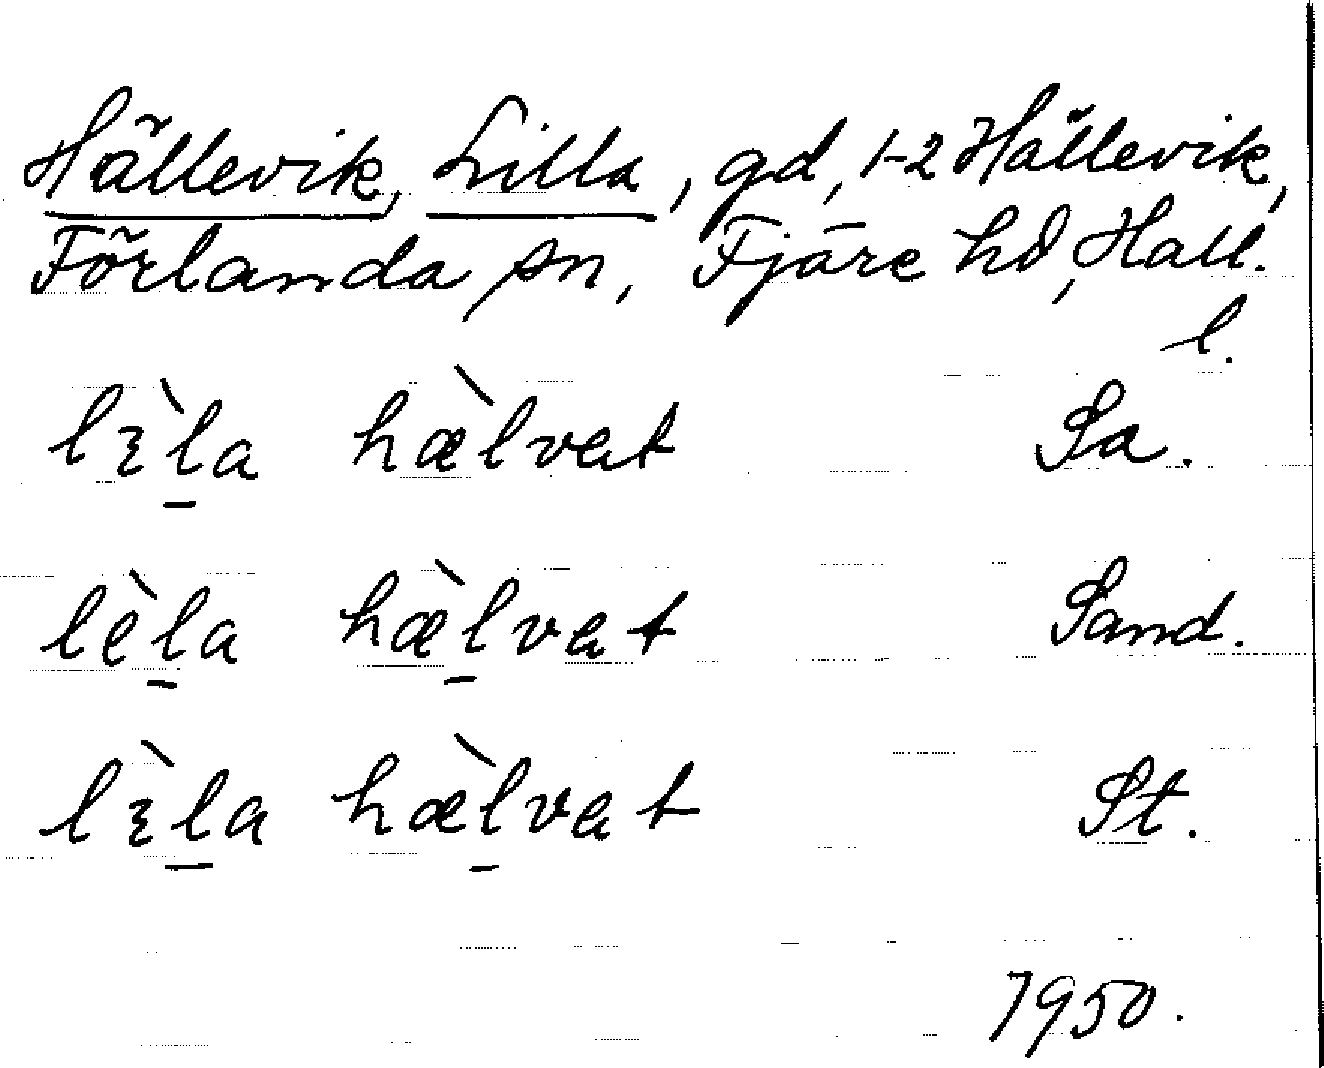 Hällevik, Lilla, gd, 1-2 Hällevik,
Förlanda sn, Fjäre hd, Hall.
l.
lɛ̀la hæ̀lvat Sa.
lèla hæ̀lvat Sand.
lɛ̀la hæ̀lvat St.
1950.